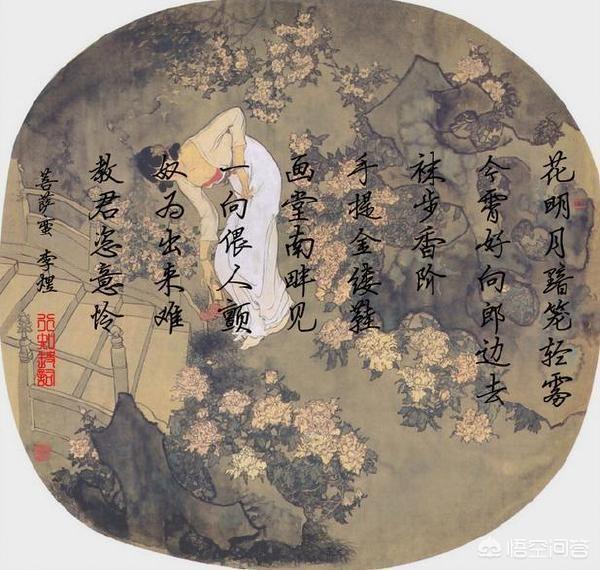 花明月黯笼轻雾
今宵好向郎边去
袜步香阶
手提金缕鞋
画堂南畔见
一向偎人颤
奴为出来难
教君恣意怜
菩萨蛮 李煜
悟空问答